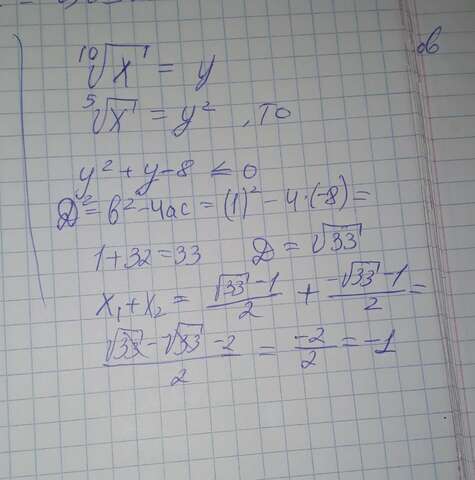 ¹⁰√x = y
⁵√x = y² , то
y² + y - 8 ≤ 0
D² = b² - 4ac = (1)² - 4·(-8) =
1 + 32 = 33 D = √33
x₁ + x₂ = (√33 - 1)/2 + (-√33 - 1)/2 =
(√33 - √33 - 2)/2 = -2/2 = -1